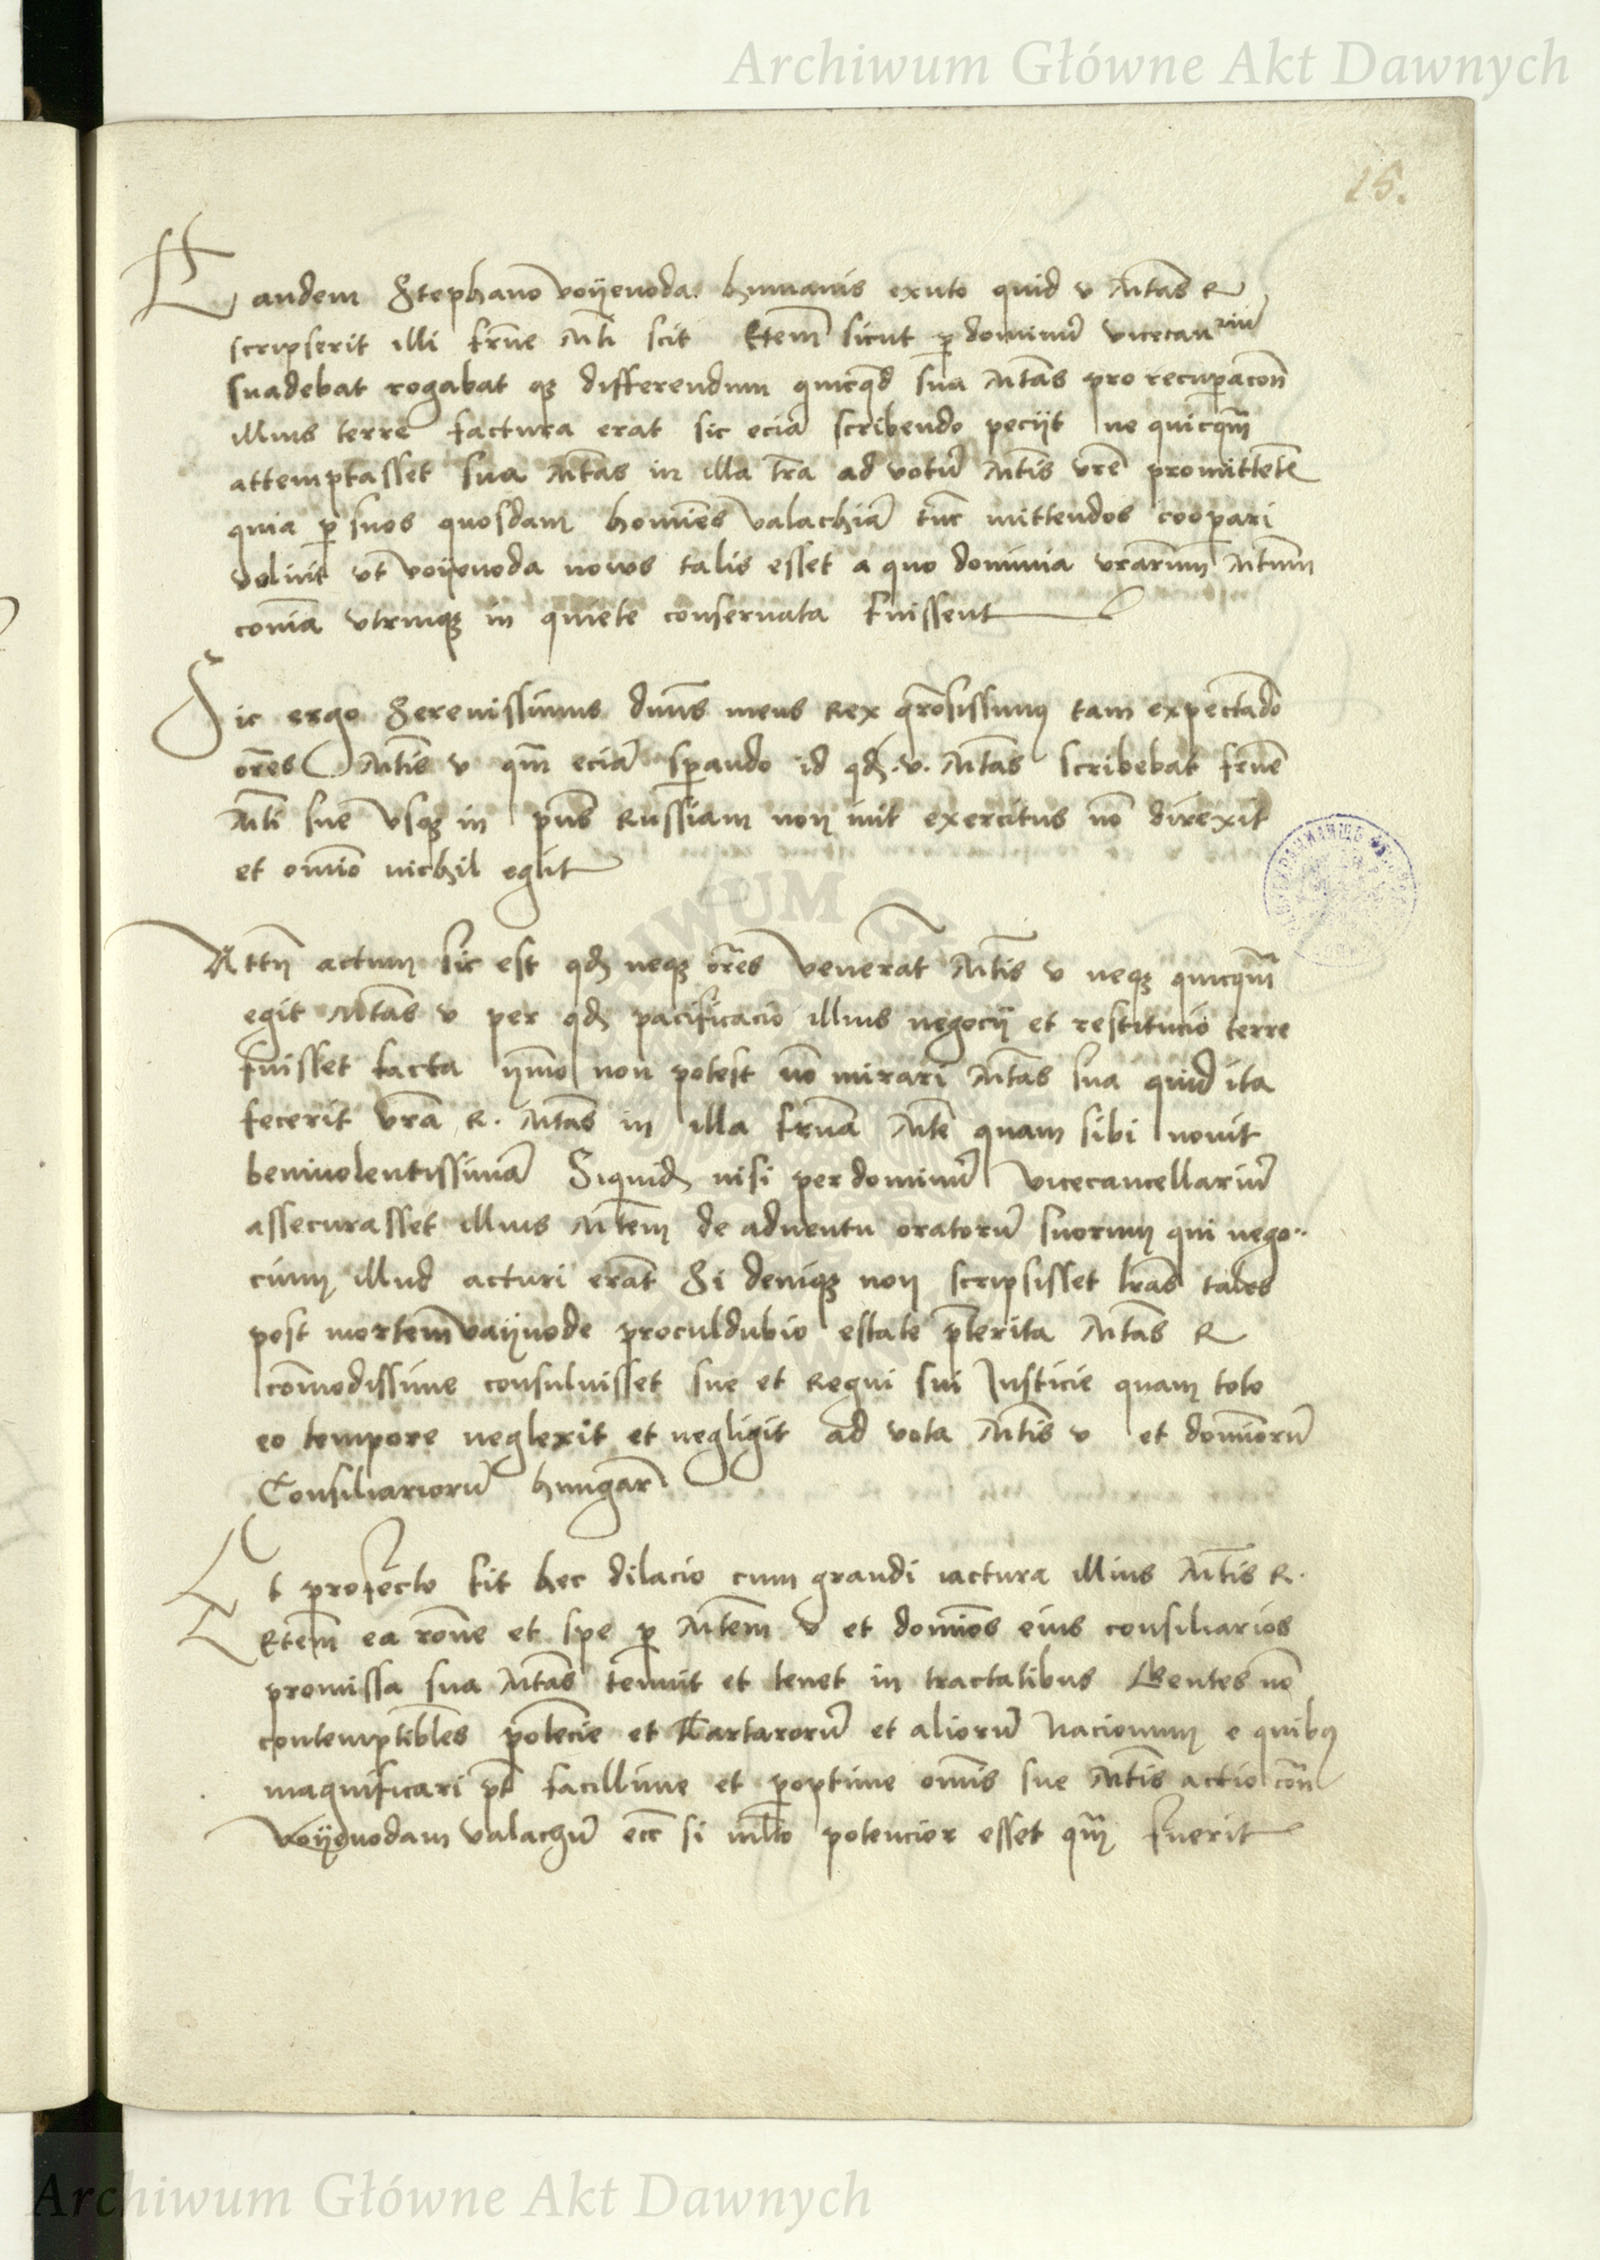 Archiwum Główne Akt Dawnych
15.
Tandem Stephano voyevoda humanis exuto quid v Mtas R
scripserit illi frne Mti scit Etem sicut p dominu vicecanriu
suadebat rogabat q differendum quicqd sua Mtas pro recupacon
illius terre factura erat sic ecia scribendo peciit ne quicqm
attemptasset sua Mtas in illa tra ad votu Mtis vre promittete
quia p suos quosdam homies valachia tuc mittendos coopari
voluit vt voyevoda novus talis esset a quo dominia vrarum Mtum
comia vtrinq in quiete conservata fuissent
Sic ergo Serenissimus dnus meus Rex grosissimus tam expectado
ores Mtis v qm ecia sperando id qd v. Mtas scribebat frne
Mti sue vsq in pns Russiam non ivit exercitus no direxit
et omio nichil egit
Attn actum sic est qd neq ores venerat Mtis v neq quicqm
egit Mtas v per qd pacificacio illius negocij et restitucio terre
fuisset facta ymo non potest no mirari Mtas sua quid ita
fecerit vra R. Mtas in illa frna Mte quam sibi novit
benivolentissima Siquid nisi per dominu vicecancellariu
assecurasset illius Mtem de adventu oratoru suorum qui nego
cium illud acturi erat Si deniq non scripsisset lras tales
post mortem vayvode proculdubio estate pterita Mtas R
comodissime consuluisset sue et Regni sui Justicie quam toto
eo tempore neglexit et negligit ad vota Mtis v et domioru
Consiliarioru hungar
Et profecto fit hec dilacio cum grandi iactura illius Mtis R.
Etem ea rone et spe p Mtem v et domios eius consiliarios
promissa sua Mtas tenuit et tenet in tractatibus Gentes no
contemptibles potecie et Tartaroru et alioru Nacionum e quibus
magnificari pt facillime et poptime omis sue Mtis actio con
Voyevodam valachu ecc si mlto potencior esset qm fuerit
Archiwum Główne Akt Dawnych